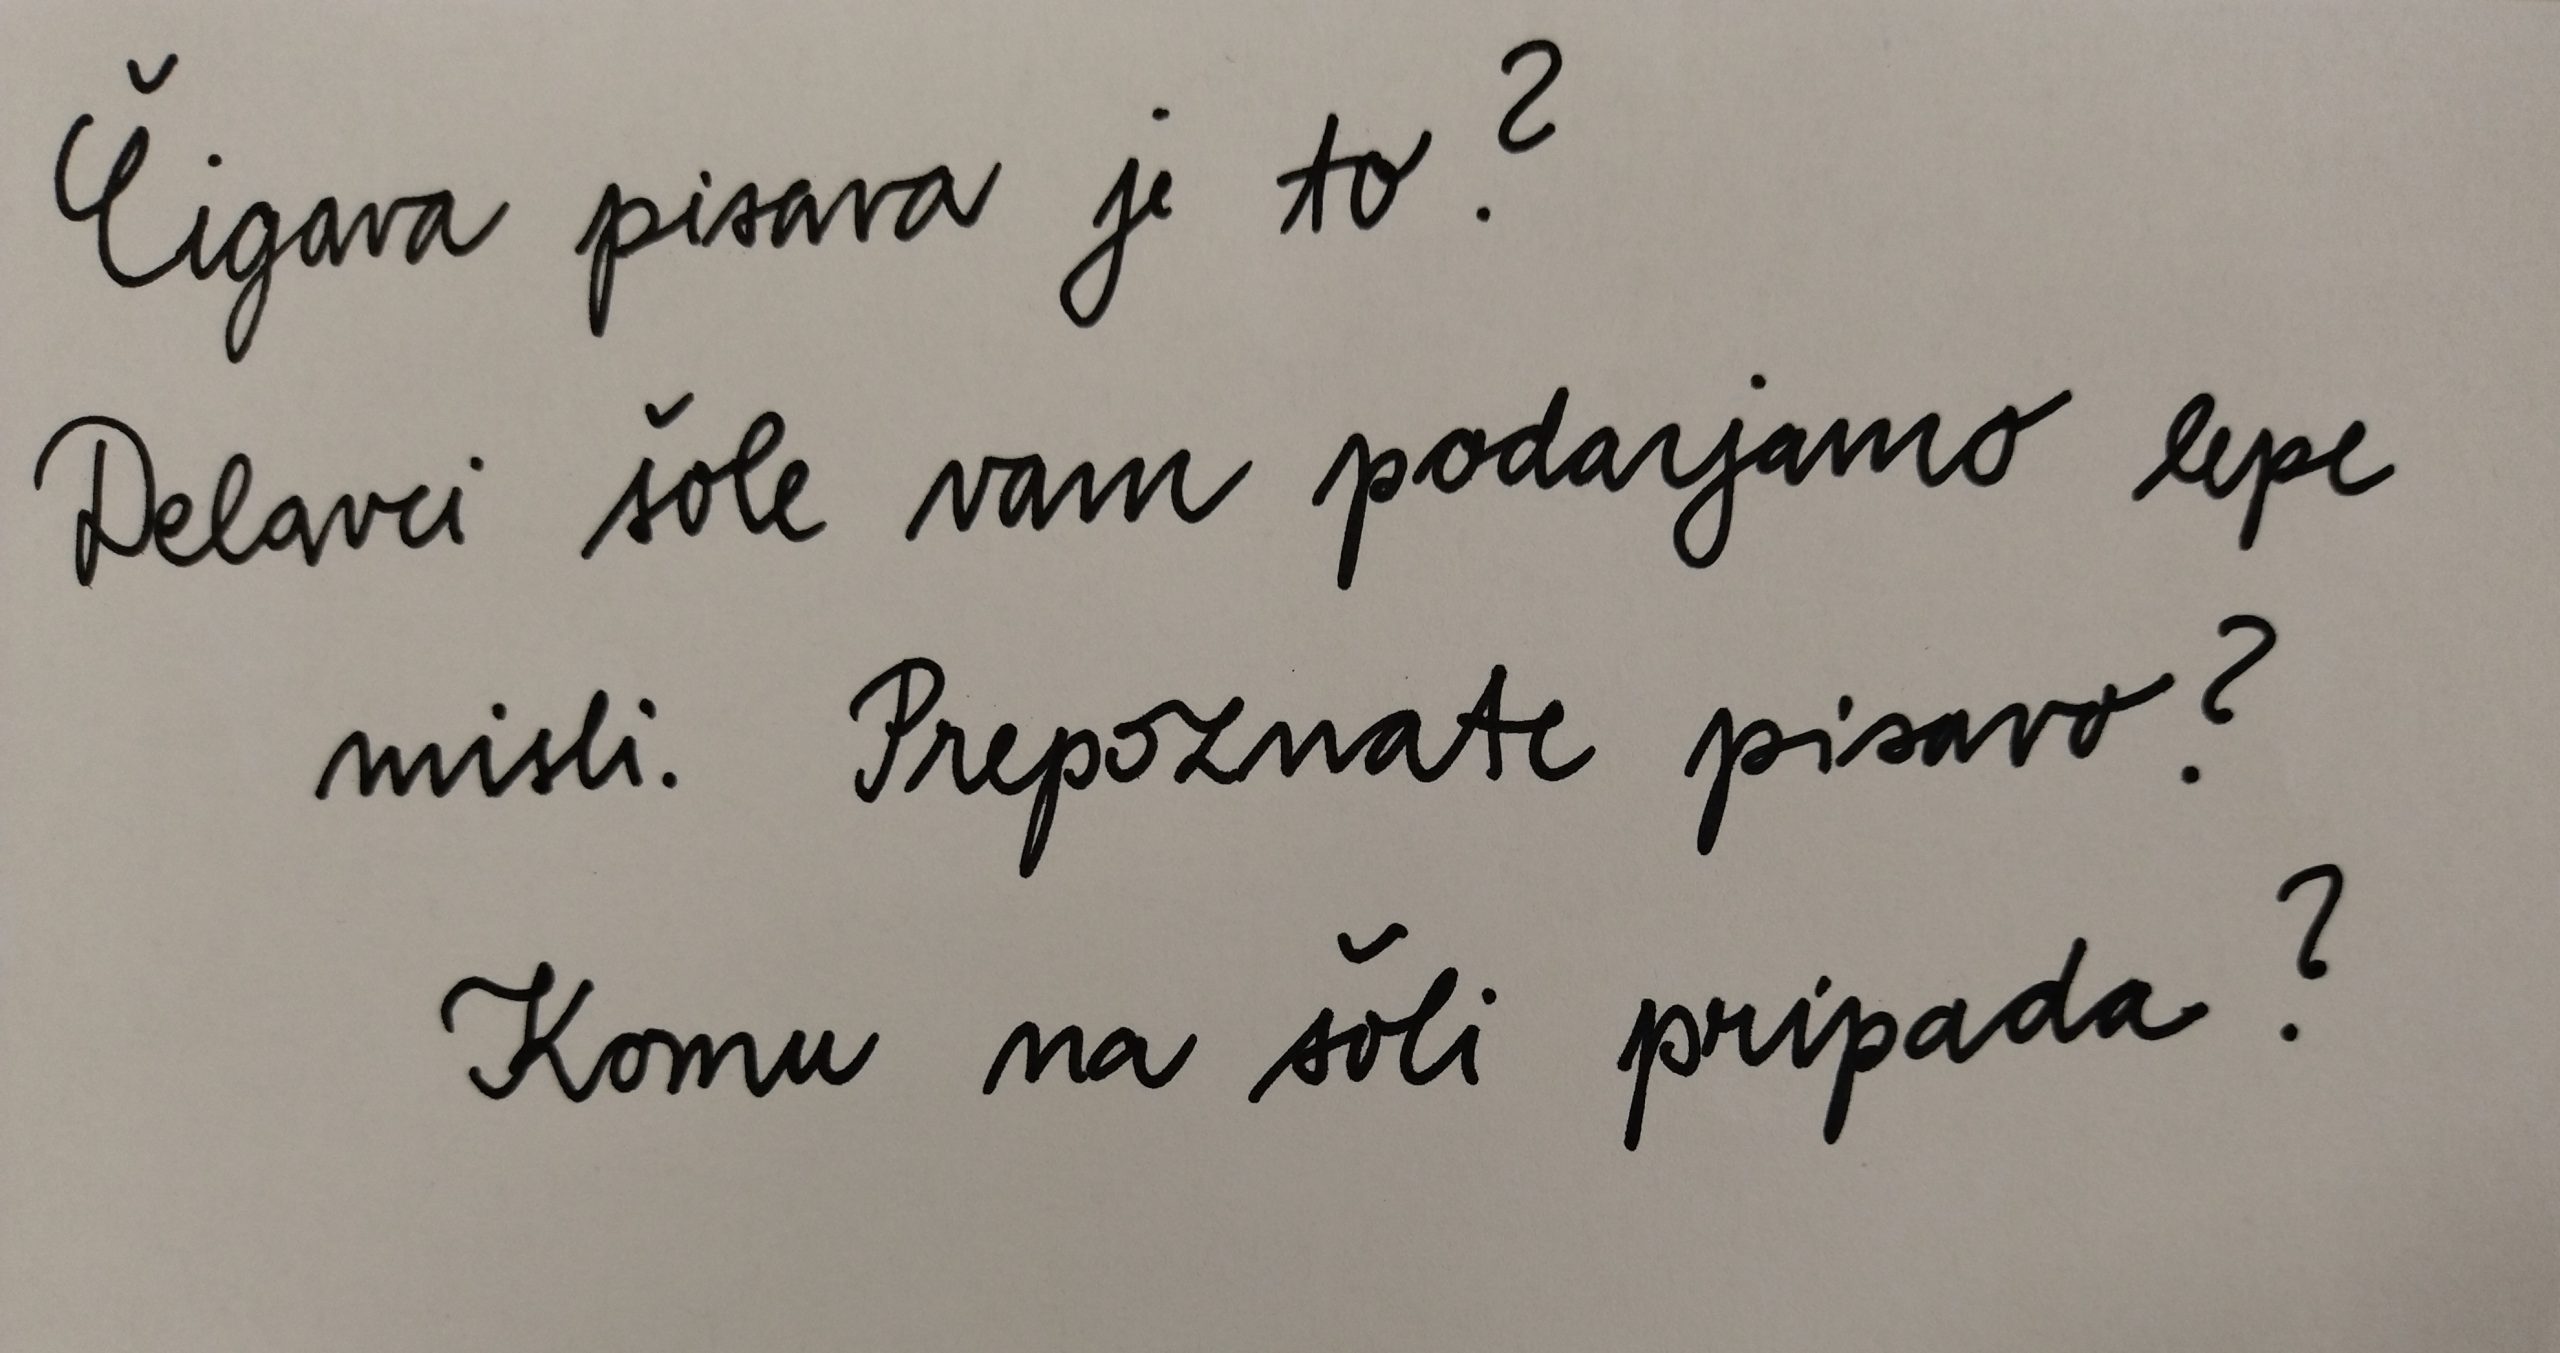 Čigava pisava je to?
Delavci šole vam podarjamo lepe
misli. Prepoznate pisavo?
Komu na šoli pripada?